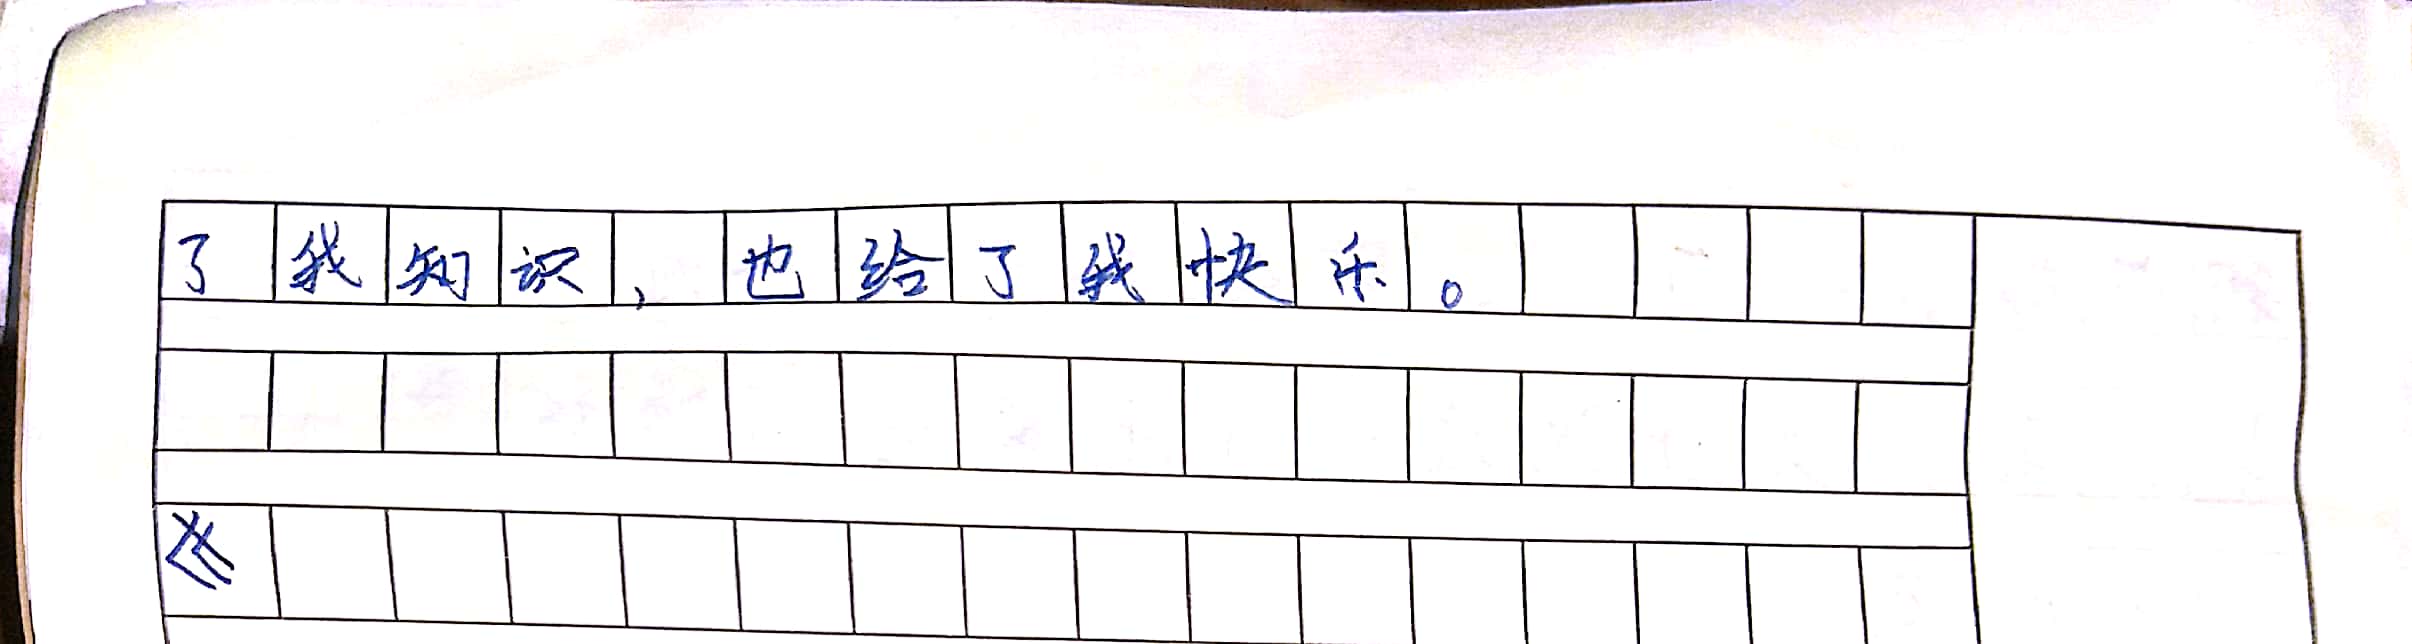 了我知识，也给了我快乐。
《